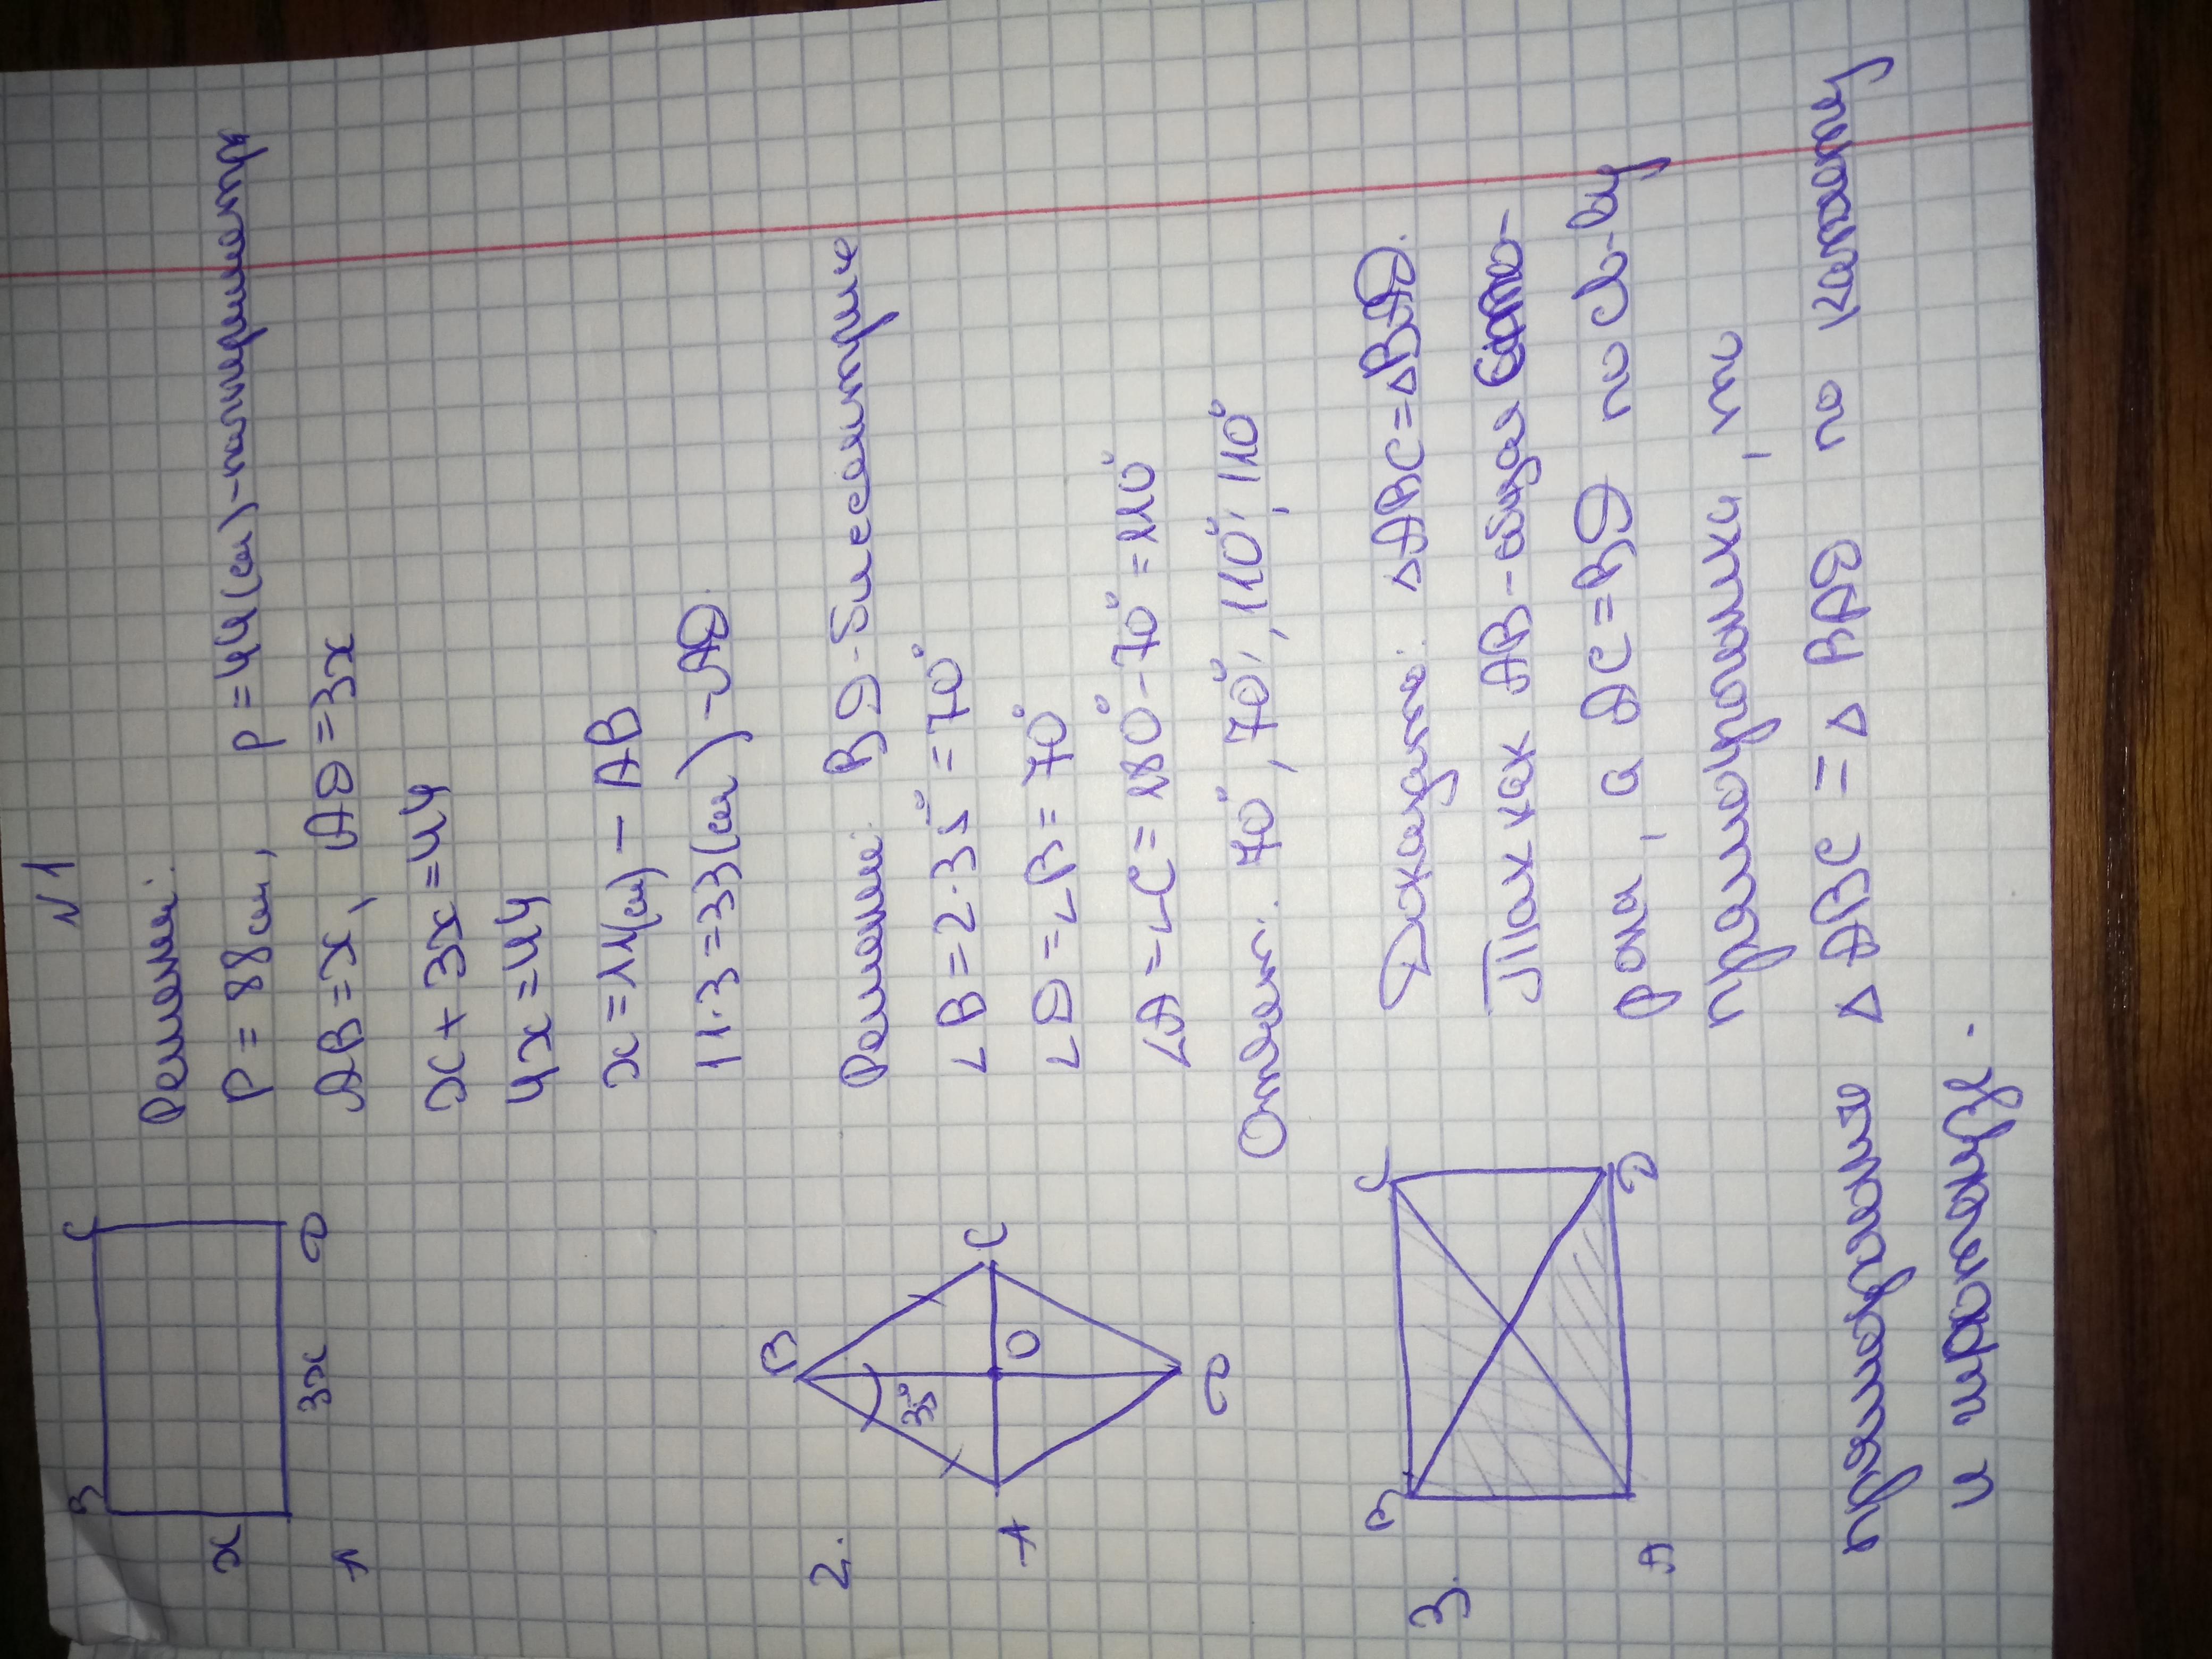 N1
B C
Решение:
P = 88 см, p = 44 (см) - полупериметр
x
A 3x D
AB = x, AD = 3x
x + 3x = 44
4x = 44
x = 11 (см) - AB
11·3 = 33 (см) - AD.
2.
B
Решение: BD - биссектрисе
35°
∠B = 2·35° = 70°
A O C
∠D = ∠B = 70°
D
∠A = ∠C = 180° - 70° = 110°
Ответ: 70°, 70°, 110°, 110°
3.
B C
Доказать: △ABC = △BAD.
Так как AB - общая сто-
A D
рона, а AC = BD по св-ву
прямоугольника, то
прямоугольные △ABC = △BAD по катету
и гипотенузе.